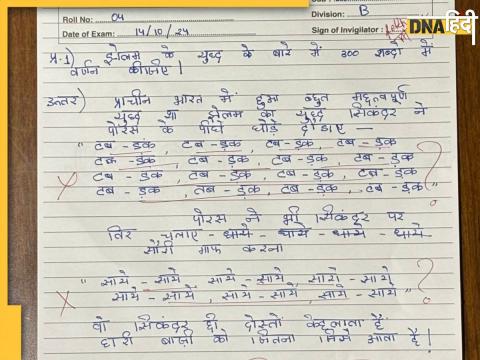 DNA हिंदी
Roll No: 04
Division: B
Date of Exam: 14/10/24
Sign of Invigilator:
प्र.1) झेलम के युद्ध के बारे में 300 शब्दो में
वर्णन कीजिए |
उत्तर) प्राचीन भारत में हुआ बहुत महत्त्वपूर्ण
युद्ध था झेलम का युद्ध सिकंदर ने
पोरस के पीछे घोड़े दौडाए —
" टब-डक, टब-डक, टब-डक, टब-डक
टब-डक, टब-डक, टब-डक, टब-डक
टब-डक, टब-डक, टब-डक, टब-डक
टब-डक, तब-डक, टब-डक, टब-डक "
पोरस ने भी सिकंदर पर
तिर चलाए - धाये - धाये - धाये - धाये
सॉरी माफ करना
" साये - साये, साये - साये, साये - साये
साये - साये, साये - साये, साये - साये "
वो सिकंदर ही दोस्तों केहलाता है
हारी बाज़ी को जितना जिसे आता है |